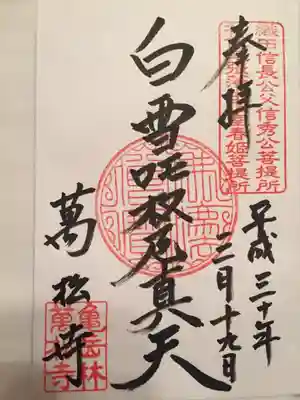 織田信長公父信秀公菩提所
春姫菩提所
奉拝
平成三十年
二月十九日
白雪吒枳尼真天
萬松寺
亀岳林
萬松寺